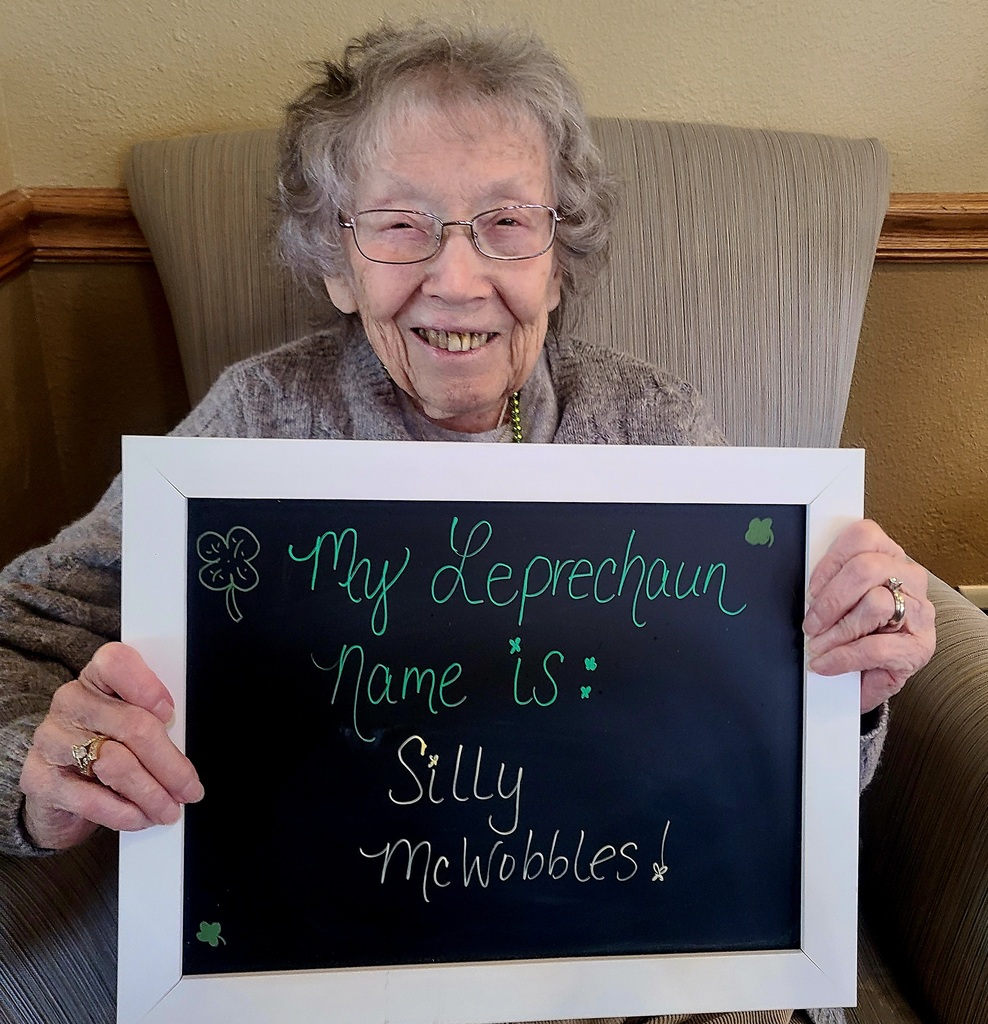 My Leprechaun
Name is:
Silly
McWobbles!